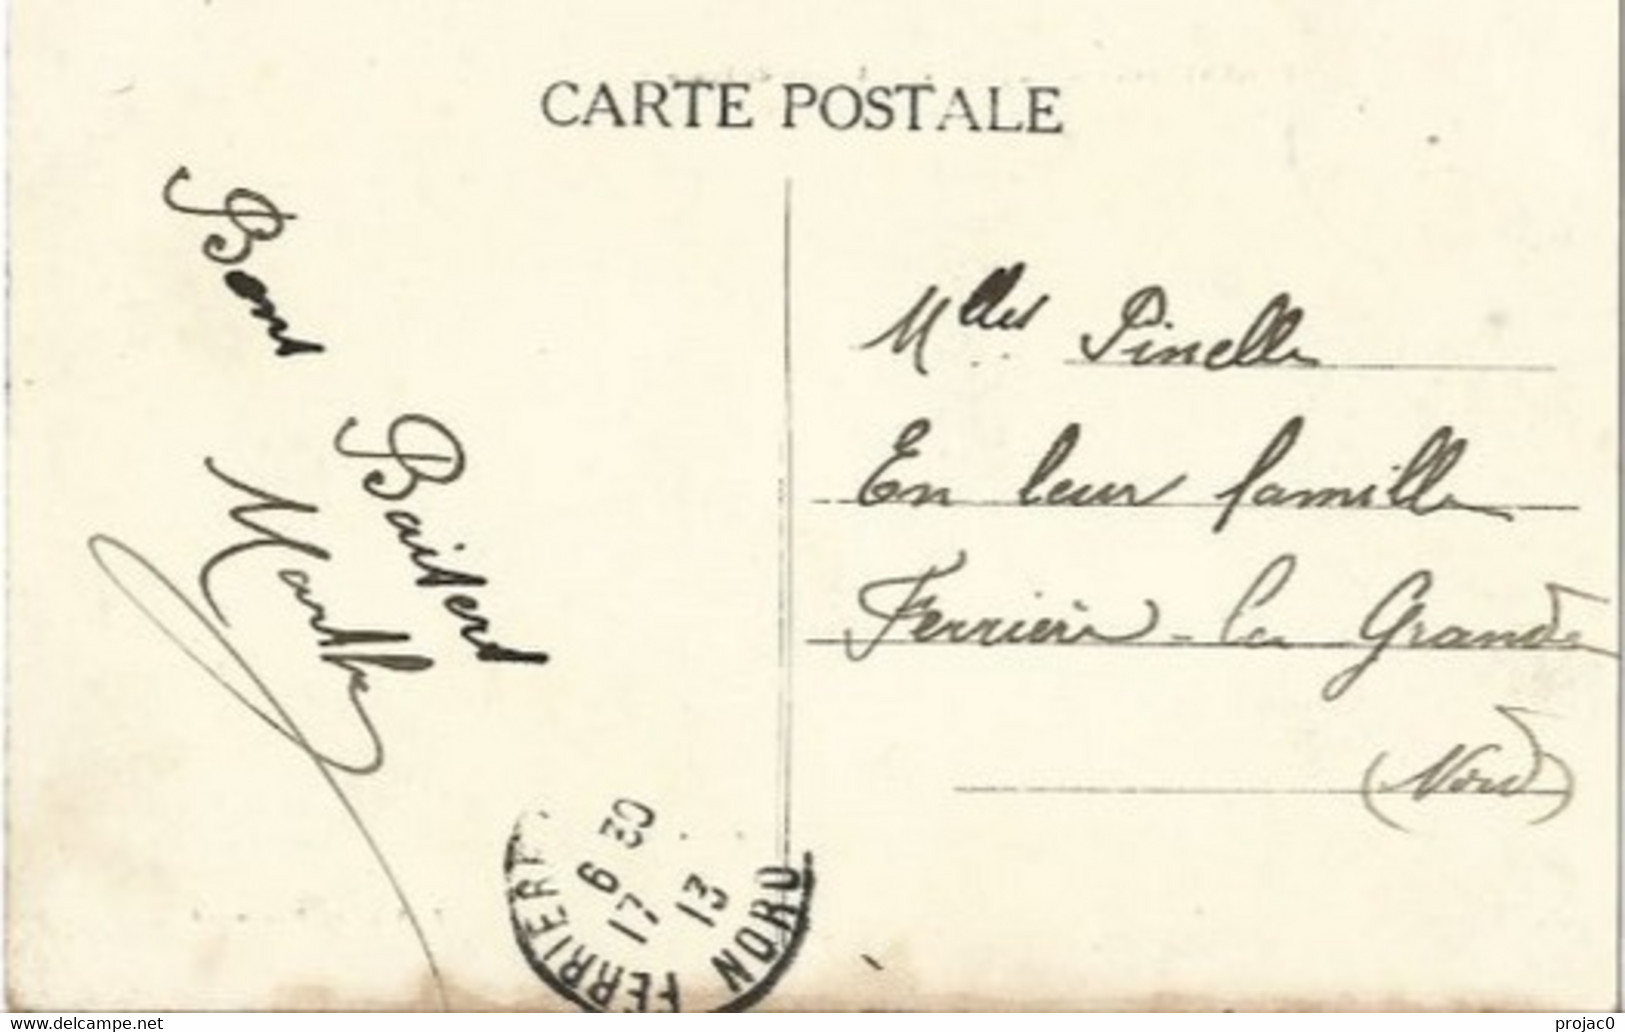 CARTE POSTALE
Bons
Baisers
Marthe
Mlles Pinelle
En leur famille
Ferrière-la Grande
(Nord)
FERRIERE
NORD
6 30
17
13
www.delcampe.net
projac0